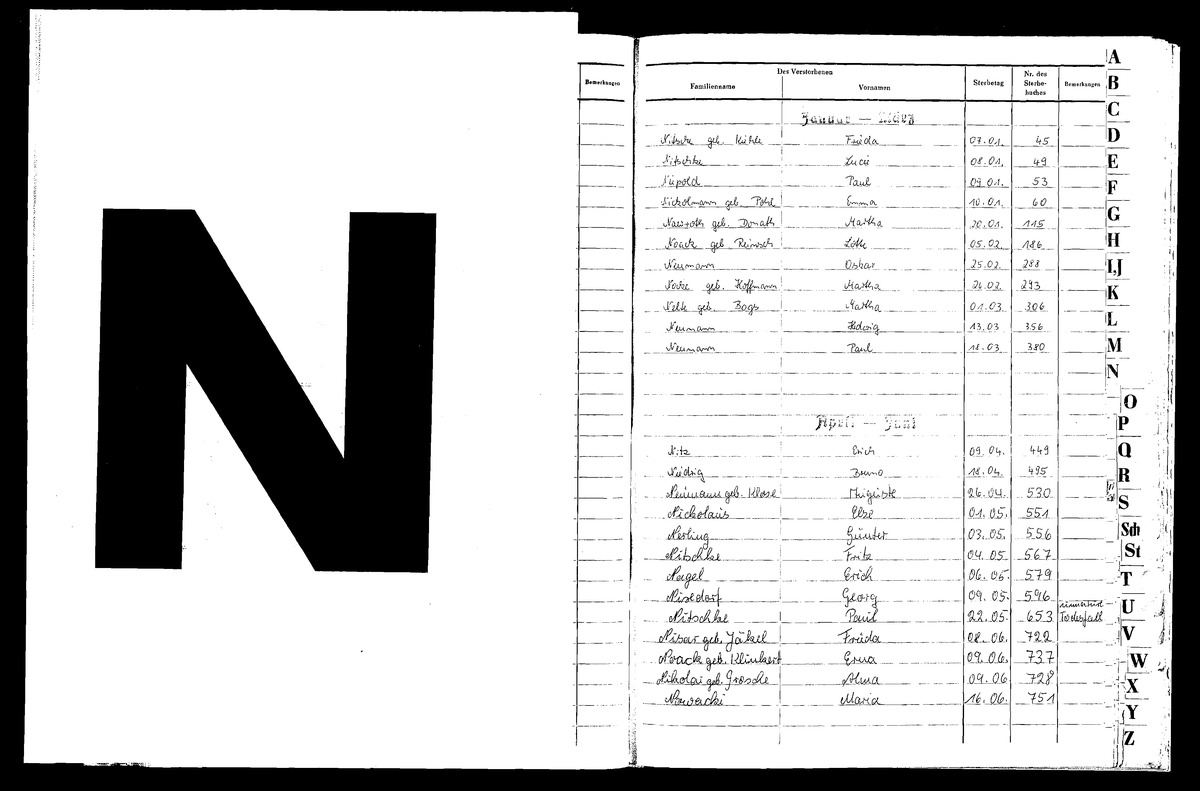 N
Bemerkungen
Des Verstorbenen
Familienname Vornamen Sterbetag Nr. des Sterbe-buches Bemerkungen
Januar — März
Nitsche geb. Kühle Frieda 07.01. 45
Nitschke Lucie 08.01. 49
Niepold Paul 09.01. 53
Nickolmann geb. Pohl Emma 10.01. 60
Nawroth geb. Donath Martha 20.01. 115
Noack geb. Reinsch Lotte 05.02. 186
Neumann Oskar 25.02. 288
geb. Hoffmann Martha 26.02. 293
geb. Bogs Martha 01.03. 306
Neumann Hedwig 13.03 356
Neumann Paul 18.03 380
April — Juni
Nitz Erich 09.04. 449
Niedrig Bruno 18.04. 495
Neumann geb. Klose Auguste 26.04. 530
Nickolaus Else 01.05. 551
Nerling Günter 03.05. 556
Nitschke Fritz 04.05. 567
Nagel Erich 06.05. 579
Georg 09.05. 596
Nitschke Paul 22.05. 653 Todesfall
Nisar geb. Jäkel Frieda 08.06. 722
Noack geb. Klinkert Erna 09.06. 737
Nikolai geb. Grosche Alma 09.06 728
Nowacki Maria 16.06. 751
A
B
C
D
E
F
G
H
I,J
K
L
M
N
O
P
Q
R
S
Sch
St
T
U
V
W
X
Y
Z